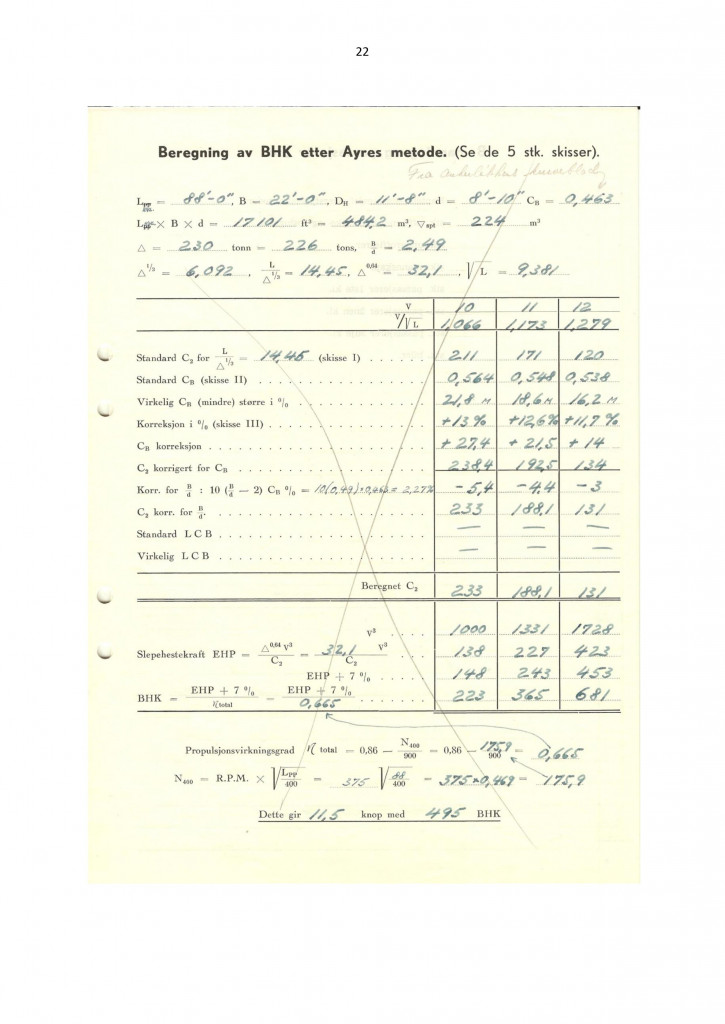 22
Beregning av BHK etter Ayres metode. (Se de 5 stk. skisser).
Fra
Lpp = 88'-0", B = 22'-0", DH = 11'-8" d = 8'-10" CB = 0,463
Lpp × B × d = 17101 ft³ = 484,2 m³, ▽spt = 224 m³
△ = 230 tonn = 226 tons, B/d = 2,49
△^1/3 = 6,092, L/△^1/3 = 14,45, △^0,64 = 32,1, √L = 9,381
V 10 11 12
V/√L 1,066 1,173 1,279
Standard C₂ for L/△^1/3 = 14,45 (skisse I) . . . . . . 211 171 120
Standard CB (skisse II) . . . . . . 0,564 0,548 0,538
Virkelig CB (mindre) større i % . . . . . . 21,8 M 18,6 M 16,2 M
Korreksjon i % (skisse III) . . . . . . +13% +12,6% +11,7%
CB korreksjon . . . . . . +27,4 +21,5 +14
C₂ korrigert for CB . . . . . . 238,4 192,5 134
Korr. for B/d : 10 (B/d — 2) CB % = 10(0,49)×0,463 = 2,27% −5,4 −4,4 −3
C₂ korr. for B/d. . . . . . . 233 188,1 131
Standard L C B . . . . . . — — —
Virkelig L C B . . . . . . — — —
Beregnet C₂ 233 188,1 131
V³ . . . . 1000 1331 1728
Slepehestekraft EHP = △^0,64 V³/C₂ = 32,1 V³/C₂ . . . 138 227 423
EHP + 7 % . . . . 148 243 453
BHK = EHP + 7 %/η total = EHP + 7 %/0,665 . . . . 223 365 681
Propulsjonsvirkningsgrad η total = 0,86 — N400/900 = 0,86 — 175,9/900 = 0,665
N400 = R.P.M. × √Lpp/400 = 375 √88/400 = 375×0,469 = 175,9
Dette gir 11,5 knop med 495 BHK